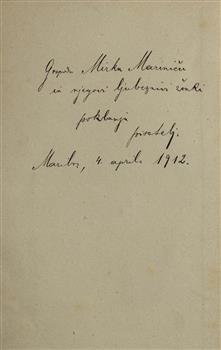 Gospodu Mirku Mariniču
in njegovi ljubeznivi ženki
poklanja
prijatelj.
Maribor, 4. aprila 1912.